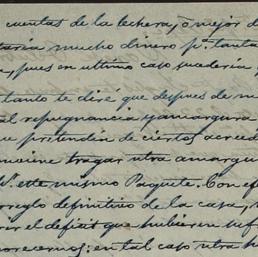 cuentas de la lechera, ó mejor d
taria mucho dinero pª tanta
, pues en ultimo caso podería
tanto te diré que despues de m
al repugnancia y amargura
ue pretendia de ciertos acreed
nviene tragar otra amargu
este mismo Paquete. Con ef
rreglo definitivo de la casa,
rir el deficit que hubiere
orecernos: en tal caso otra h